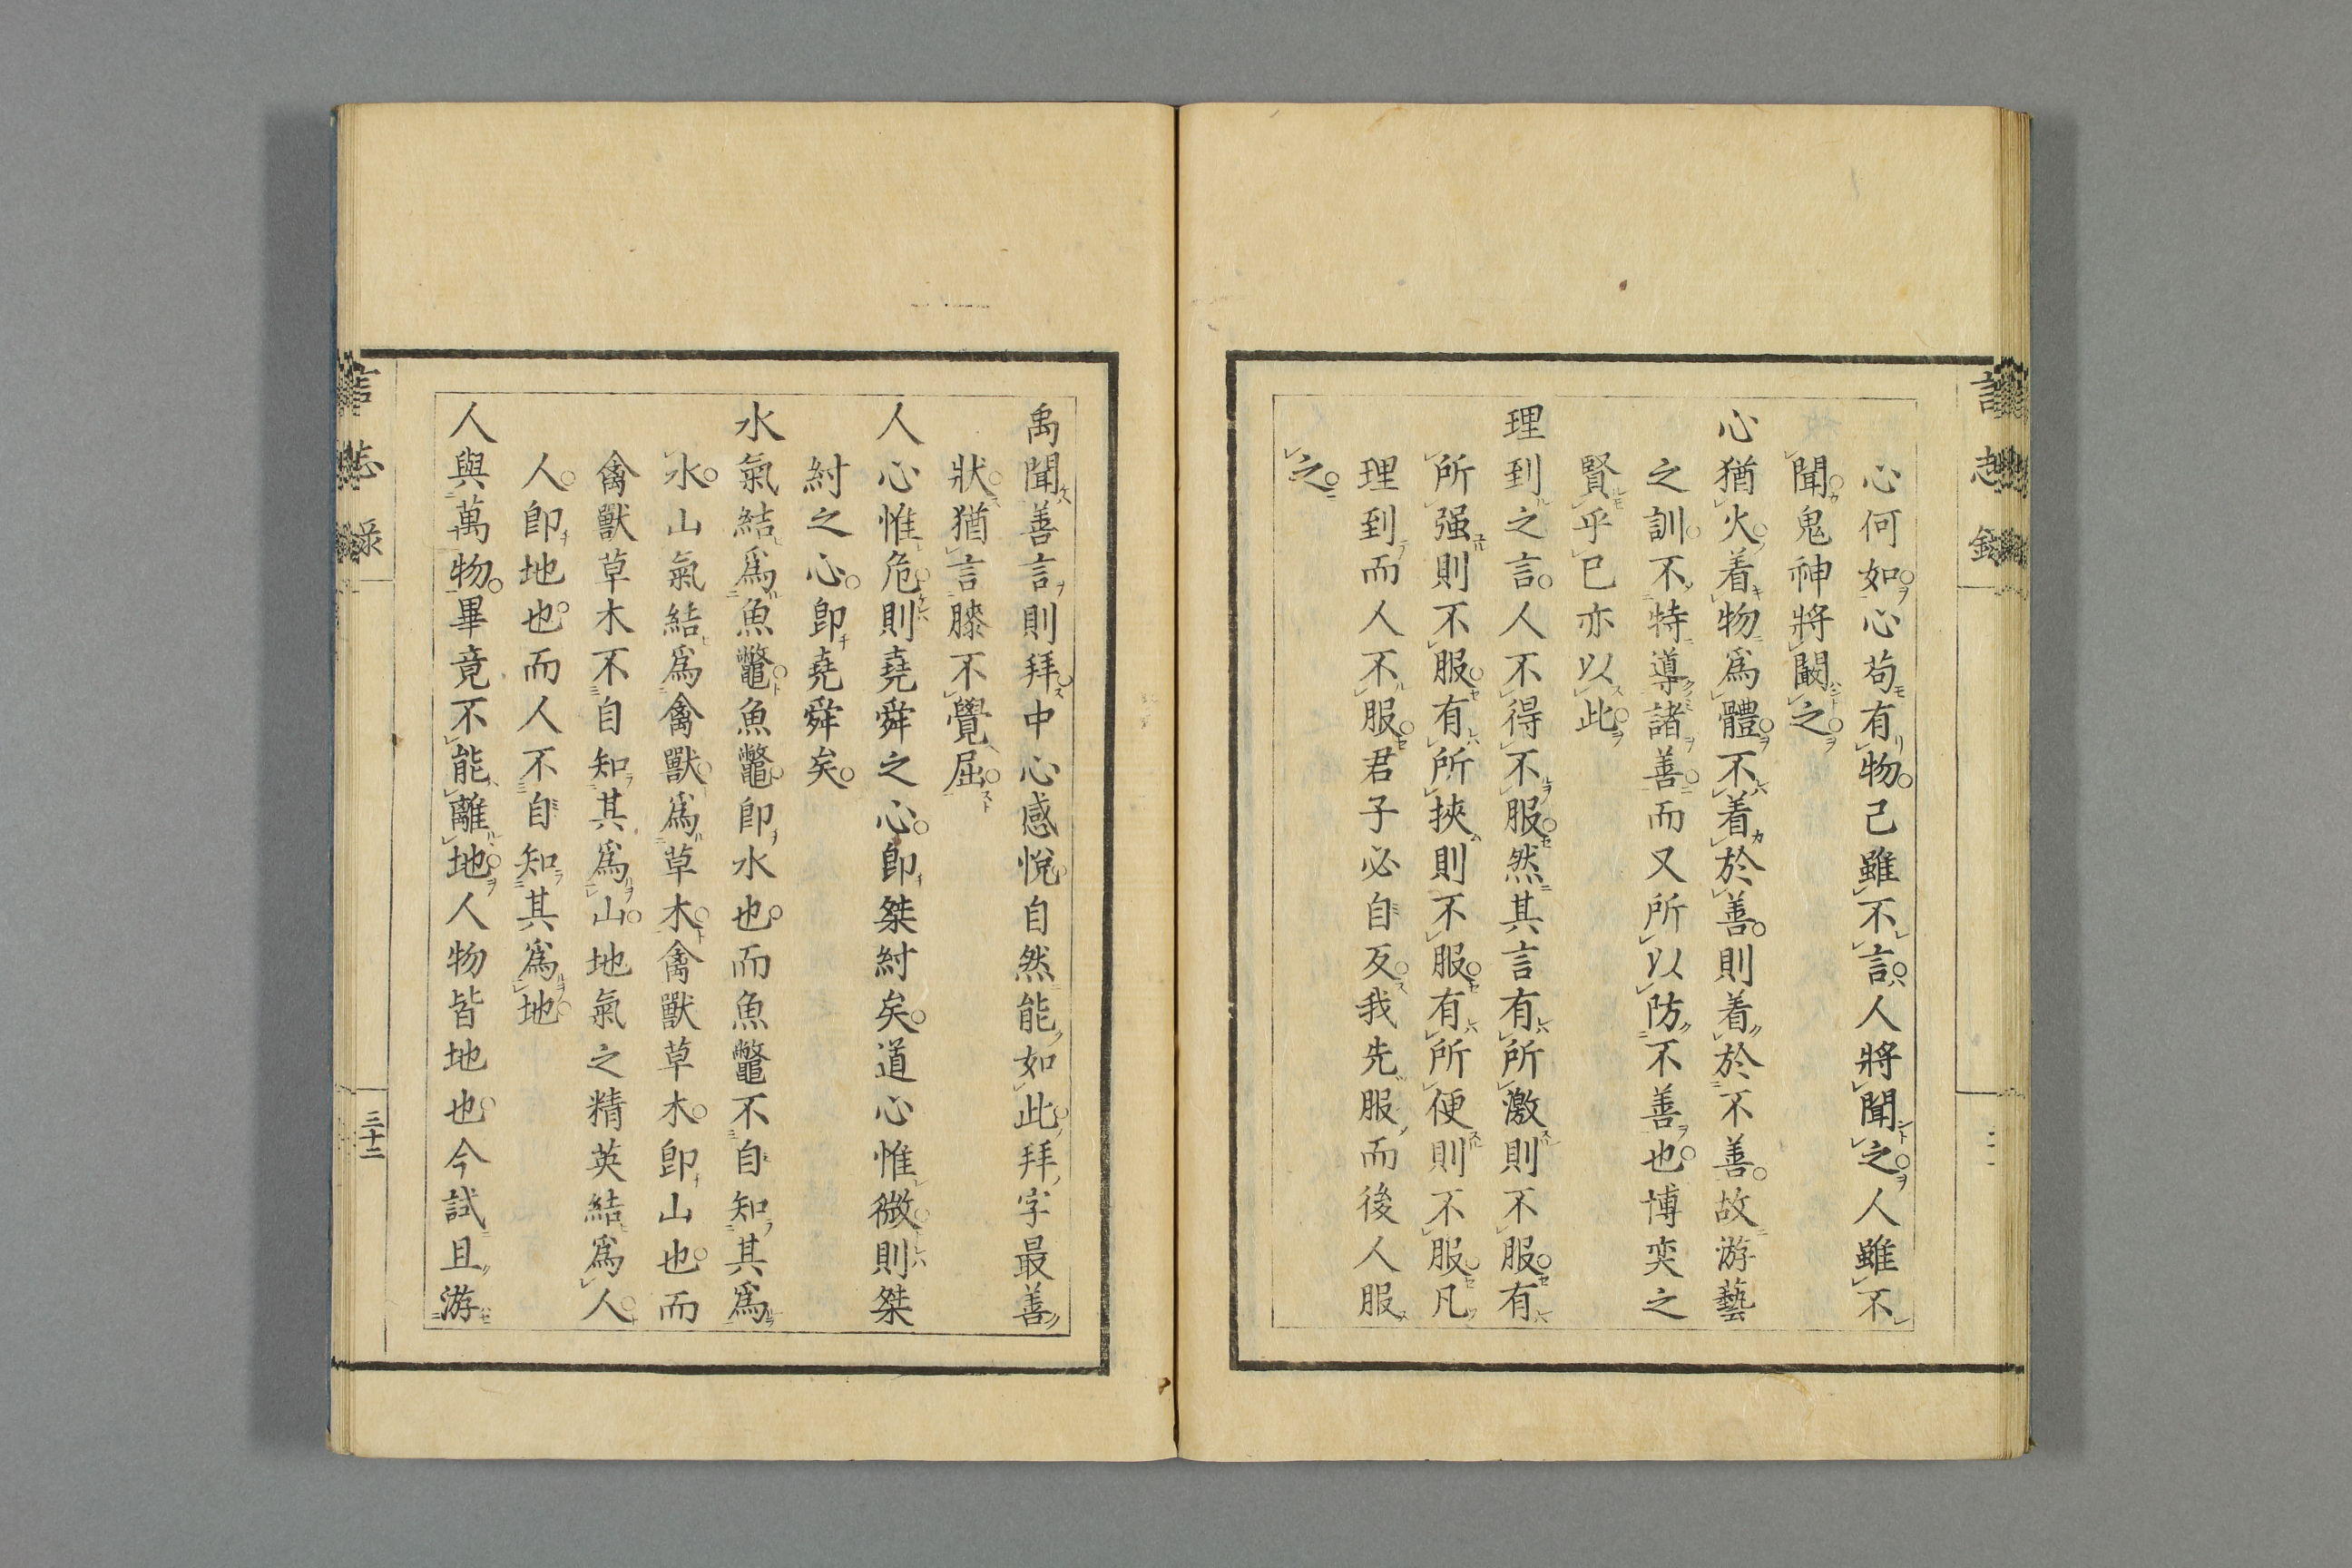 心何如心苟有物己雖不言人將聞之人雖不
聞鬼神將闞之
心猶火着物爲體不着於善則着於不善故游藝
之訓不特導諸善而又所以防不善也博奕之
賢乎已亦以此
理到之言人不得不服然其言有所激則不服有
所强則不服有所挾則不服有所便則不服凡
理到而人不服君子必自反我先服而後人服
之
禹聞善言則拜中心感悅自然能如此拜字最善
狀猶言膝不覺屈
人心惟危則堯舜之心卽桀紂矣道心惟微則桀
紂之心卽堯舜矣
水氣結爲魚鼈魚鼈卽水也而魚鼈不自知其爲
水山氣結爲禽獸爲草木禽獸草木卽山也而
禽獸草木不自知其爲山地氣之精英結爲人
人卽地也而人不自知其爲地
人與萬物畢竟不能離地人物皆地也今試且游
言志录
三十二